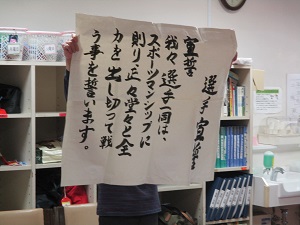 選手宣誓
宣誓
我々、選手一同は、
スポーツマンシップに
則り正々堂々と全
力を出し切って戦
う事を誓います。